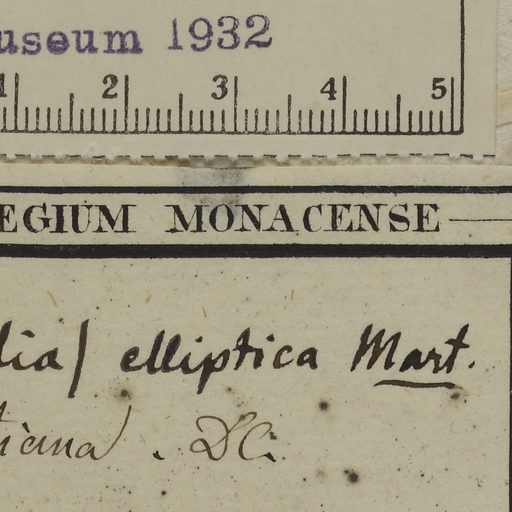 useum 1932
1 2 3 4 5
EGIUM MONACENSE
lia) elliptica Mart.
tiana). DC.